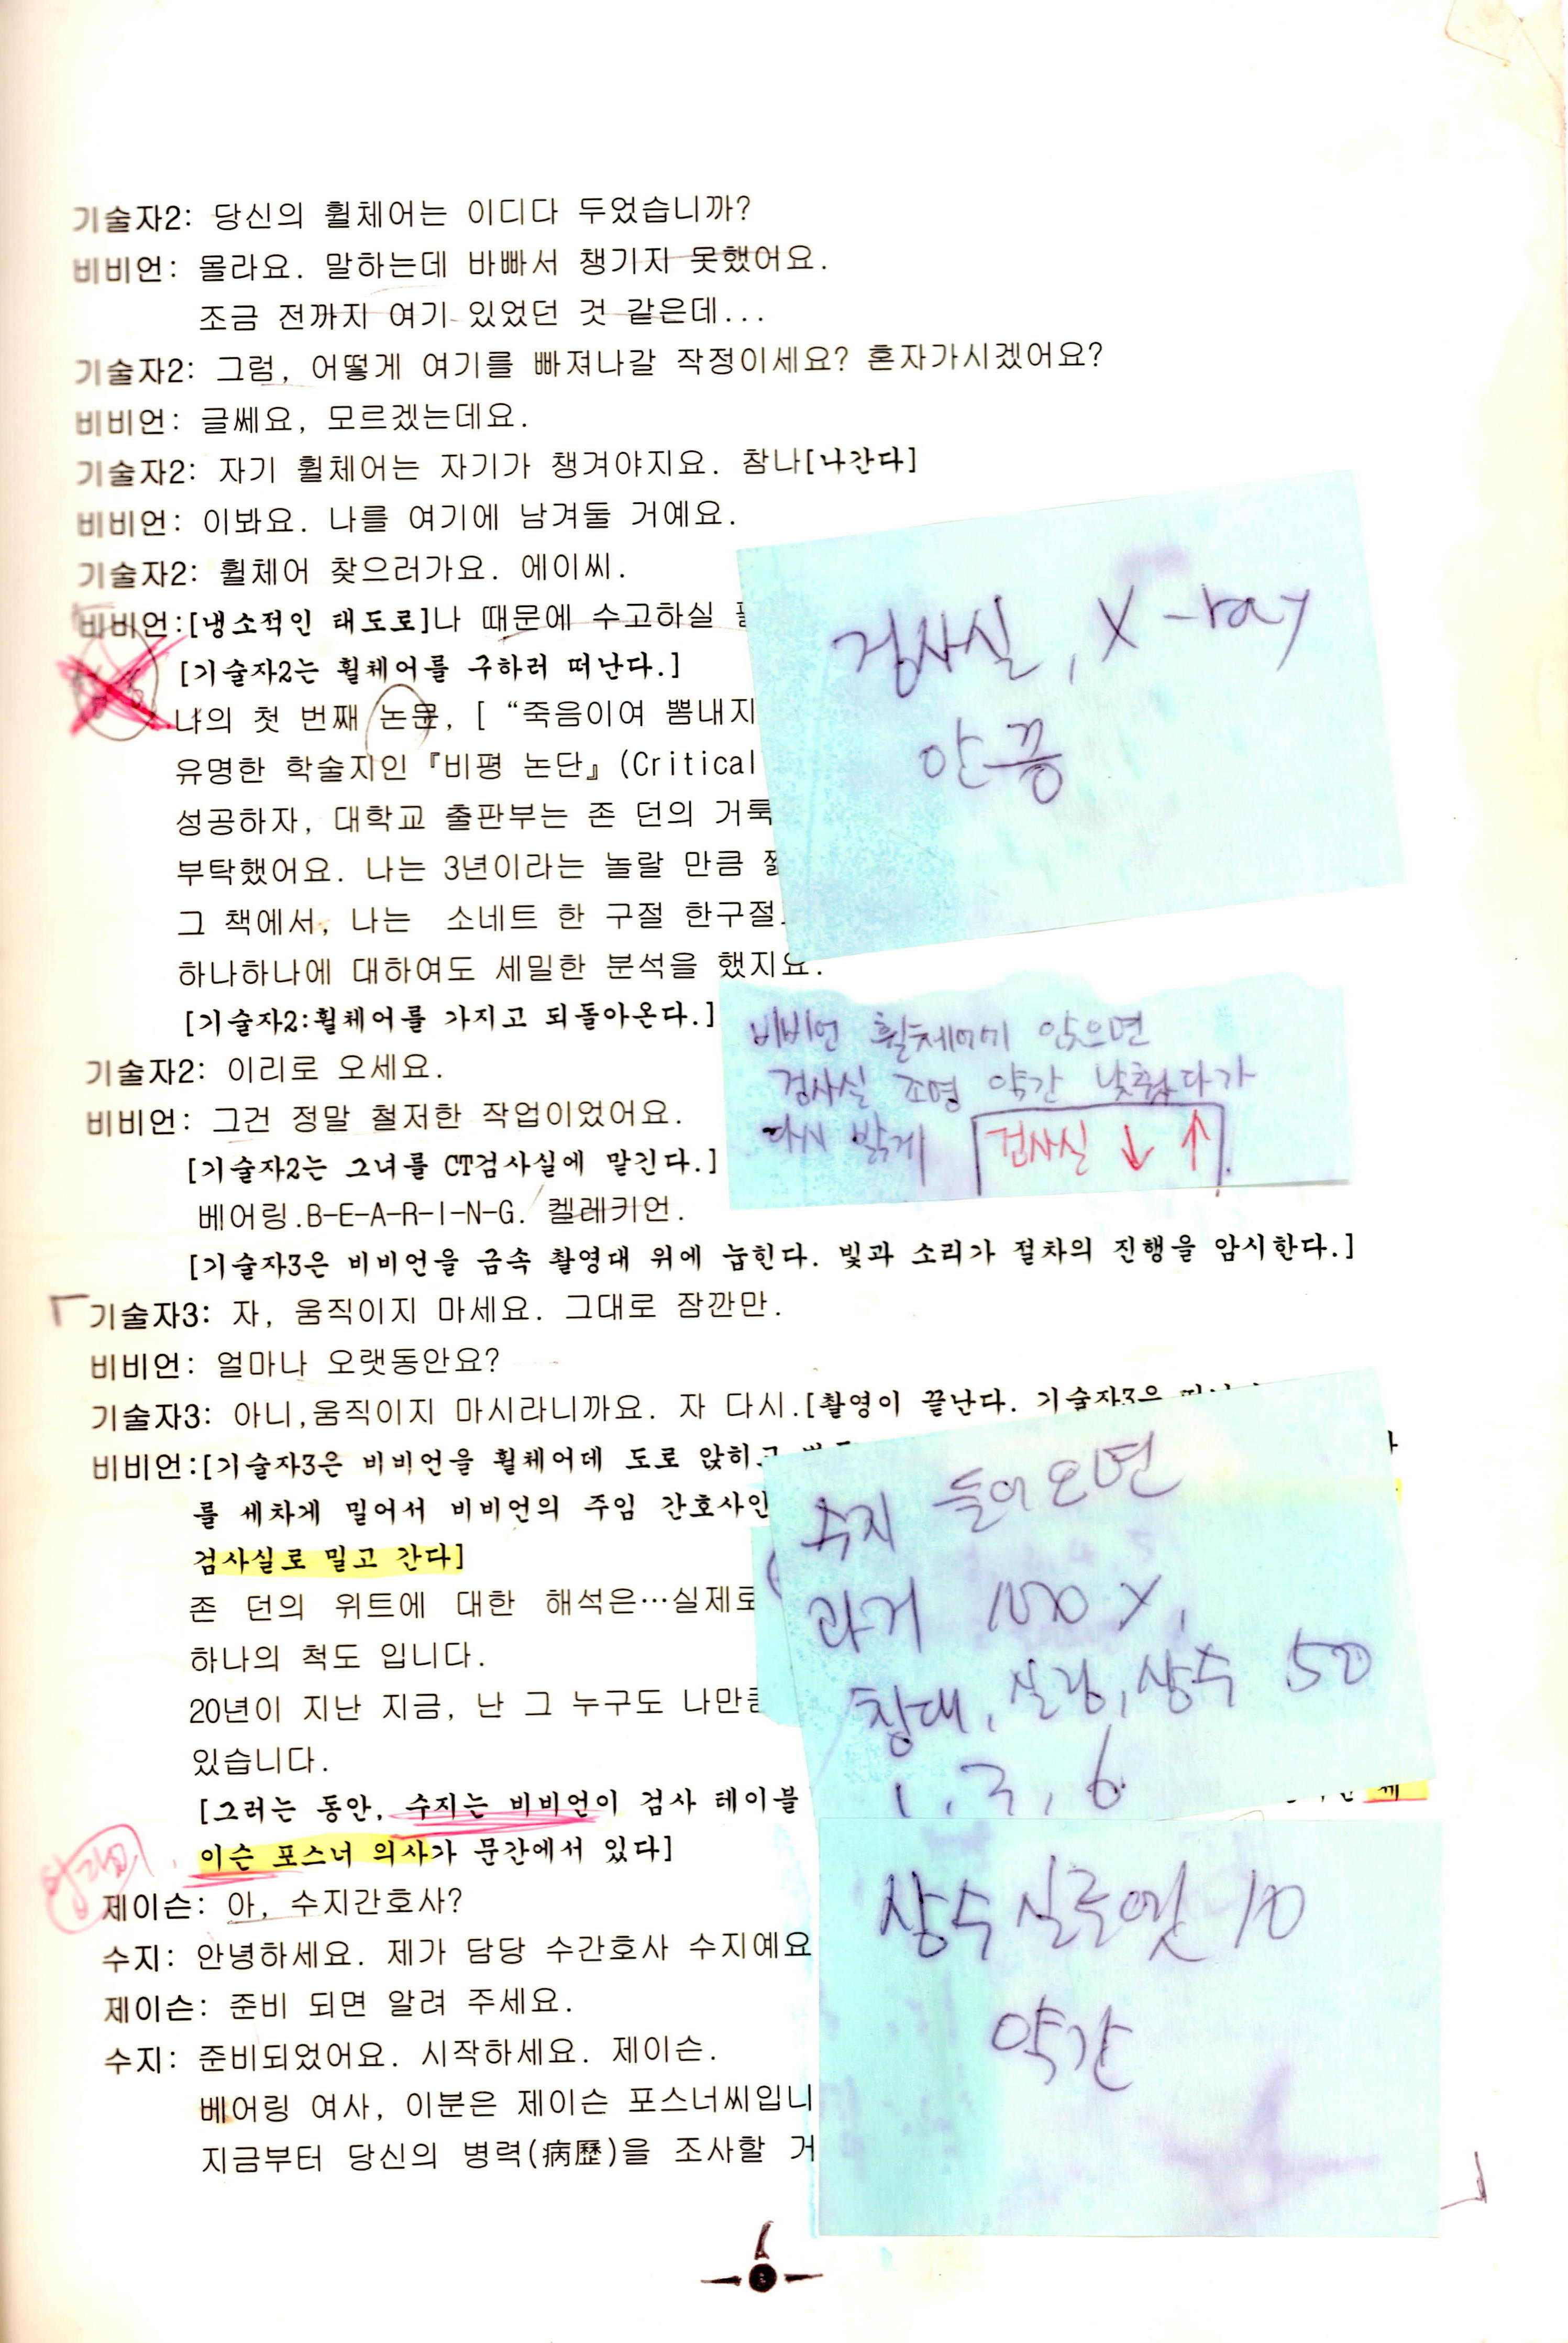 기술자2: 당신의 휠체어는 이디다 두었습니까?
비비언: 몰라요. 말하는데 바빠서 챙기지 못했어요.
조금 전까지 여기 있었던 것 같은데...
기술자2: 그럼, 어떻게 여기를 빠져나갈 작정이세요? 혼자가시겠어요?
비비언: 글쎄요, 모르겠는데요.
기술자2: 자기 휠체어는 자기가 챙겨야지요. 참나[나간다]
비비언: 이봐요. 나를 여기에 남겨둘 거예요.
기술자2: 휠체어 찾으러가요. 에이씨.
비비언:[냉소적인 태도로]나 때문에 수고하실
[기술자2는 휠체어를 구하러 떠난다.]
나의 첫 번째 논문, [ “죽음이여 뽐내지
유명한 학술지인『비평 논단』(Critical
성공하자, 대학교 출판부는 존 던의 거룩
부탁했어요. 나는 3년이라는 놀랄 만큼
그 책에서, 나는 소네트 한 구절 한구절
하나하나에 대하여도 세밀한 분석을 했지요.
[기술자2:휠체어를 가지고 되돌아온다.]
기술자2: 이리로 오세요.
비비언: 그건 정말 철저한 작업이었어요.
[기술자2는 그녀를 CT검사실에 맡긴다.]
베어링.B-E-A-R-I-N-G. 켈레키언.
[기술자3은 비비언을 금속 촬영대 위에 눕힌다. 빛과 소리가 절차의 진행을 암시한다.]
기술자3: 자, 움직이지 마세요. 그대로 잠깐만.
비비언: 얼마나 오랫동안요?
기술자3: 아니,움직이지 마시라니까요. 자 다시.[촬영이 끝난다. 기술자3은
비비언:[기술자3은 비비언을 휠체어데 도로 앉히고
를 세차게 밀어서 비비언의 주임 간호사인
검사실로 밀고 간다]
존 던의 위트에 대한 해석은…실제로
하나의 척도 입니다.
20년이 지난 지금, 난 그 누구도 나만큼
있습니다.
[그러는 동안, 수지는 비비언이 검사 테이블 제
이슨 포스너 의사가 문간에서 있다]
제이슨: 아, 수지간호사?
수지: 안녕하세요. 제가 담당 수간호사 수지예요
제이슨: 준비 되면 알려 주세요.
수지: 준비되었어요. 시작하세요. 제이슨.
베어링 여사, 이분은 제이슨 포스너씨입니
지금부터 당신의 병력(病歷)을 조사할 거
검사실, X-ray
안끔
비비언 휠체어에 앉으면
검사실 조명 약간 낮췄다가
다시 밝게 검사실 ↓ ↑
수지 들어오면
과거 100 X,
침대, 실링, 상수 50
1, 3, 6
상수 실루엣 10
약간
6